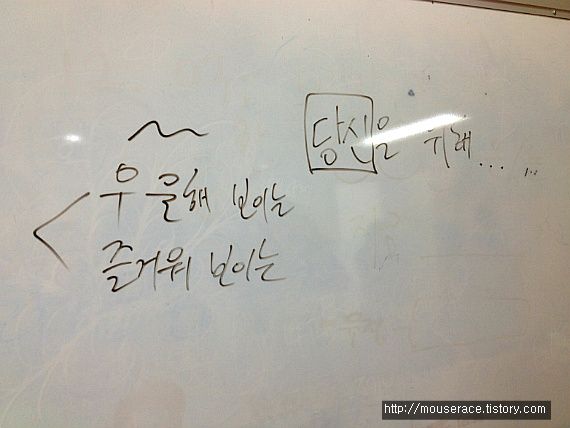 당신을 위해... ...
우울해 보이는
즐거워 보이는
http://mouserace.tistory.com